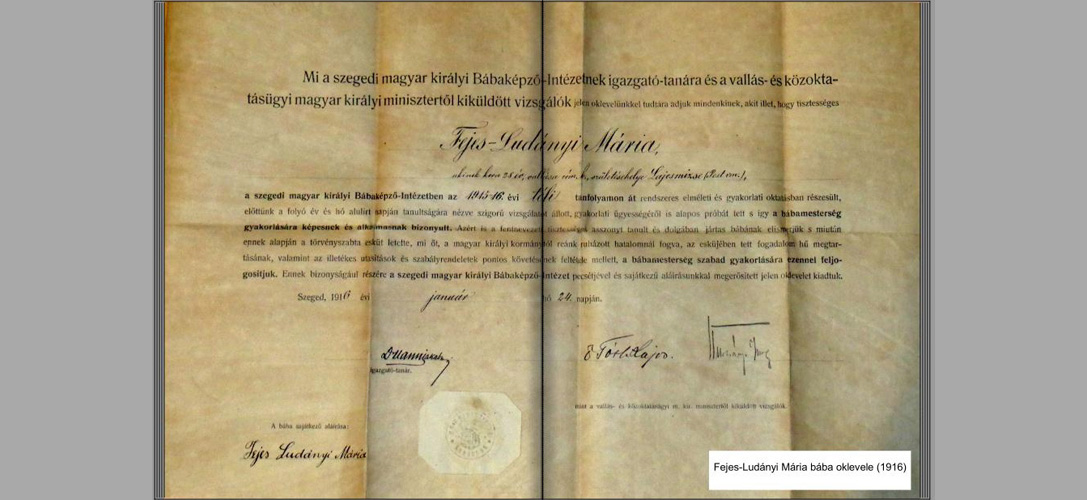 Mi a szegedi magyar királyi Bábaképző-Intézetnek igazgató-tanára és a vallás- és közokta-
tásügyi magyar királyi minisztertől kiküldött vizsgálók jelen oklevelünkkel tudtára adjuk mindenkinek, akit illet, hogy tisztességes
Fejes-Ludányi Mária,
akinek kora 28 év, vallása róm. k., születéshelye Lajosmizse (Pest m.),
a szegedi magyar királyi Bábaképző-Intézetben az 1915-16. évi téli tanfolyamon át rendszeres elméleti és gyakorlati oktatásban részesült,
előttünk a folyó év és hó alulirt napján tanultságára nézve szigorú vizsgálatot állott, gyakorlati ügyességéről is alapos próbát tett s így a bábamesterség
gyakorlására képesnek és alkalmasnak bizonyult. Azért is a fentnevezett tisztességes asszonyt tanult és dolgában jártas bábának elismerjük s miután
ennek alapján a törvényszabta esküt letette, mi őt, a magyar királyi kormánytól reánk ruházott hatalomnál fogva, az esküjében tett fogadalom hű megtar-
tásának, valamint az illetékes utasítások és szabályrendeletek pontos követésének feltétele mellett, a bábamesterség szabad gyakorlására ezennel feljo-
gosítjuk. Ennek bizonyságául részére a szegedi magyar királyi Bábaképző-Intézet pecsétjével és sajátkezű aláírásunkkal megerősített jelen oklevelet kiadtuk.
Szeged, 1916 évi január hó 24. napján.
igazgató-tanár.
mint a vallás- és közoktatásügyi m. kir. minisztertől kiküldött vizsgálók.
A bába sajátkezű aláírása:
Fejes Ludányi Mária
Fejes-Ludányi Mária bába oklevele (1916)